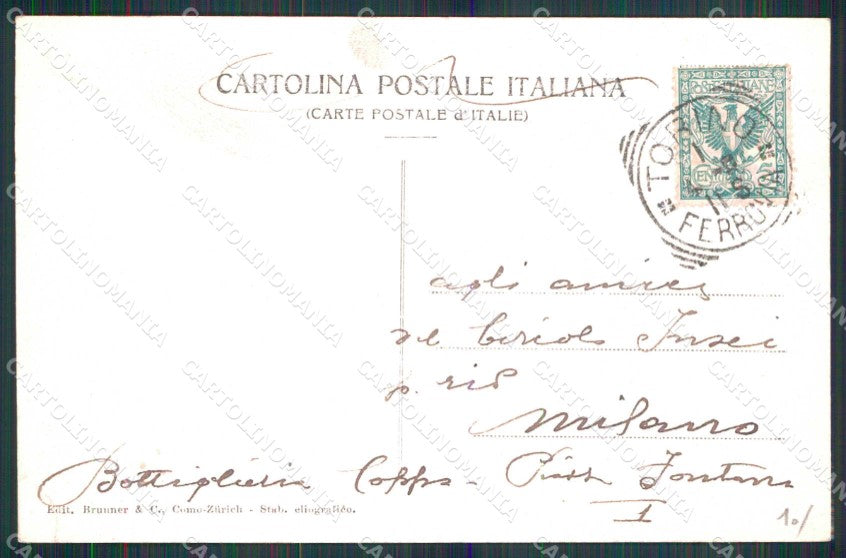 CARTOLINA POSTALE ITALIANA
(CARTE POSTALE d'ITALIE)
POSTE ITALIANE
TORINO
FERROVIA
agli amici
p.
Milano
Bottiglieria Coppa - Piazza Fontana
1
Edit. Brunner & C., Como-Zürich - Stab. eliografico.
10/
CARTOLINOMANIA